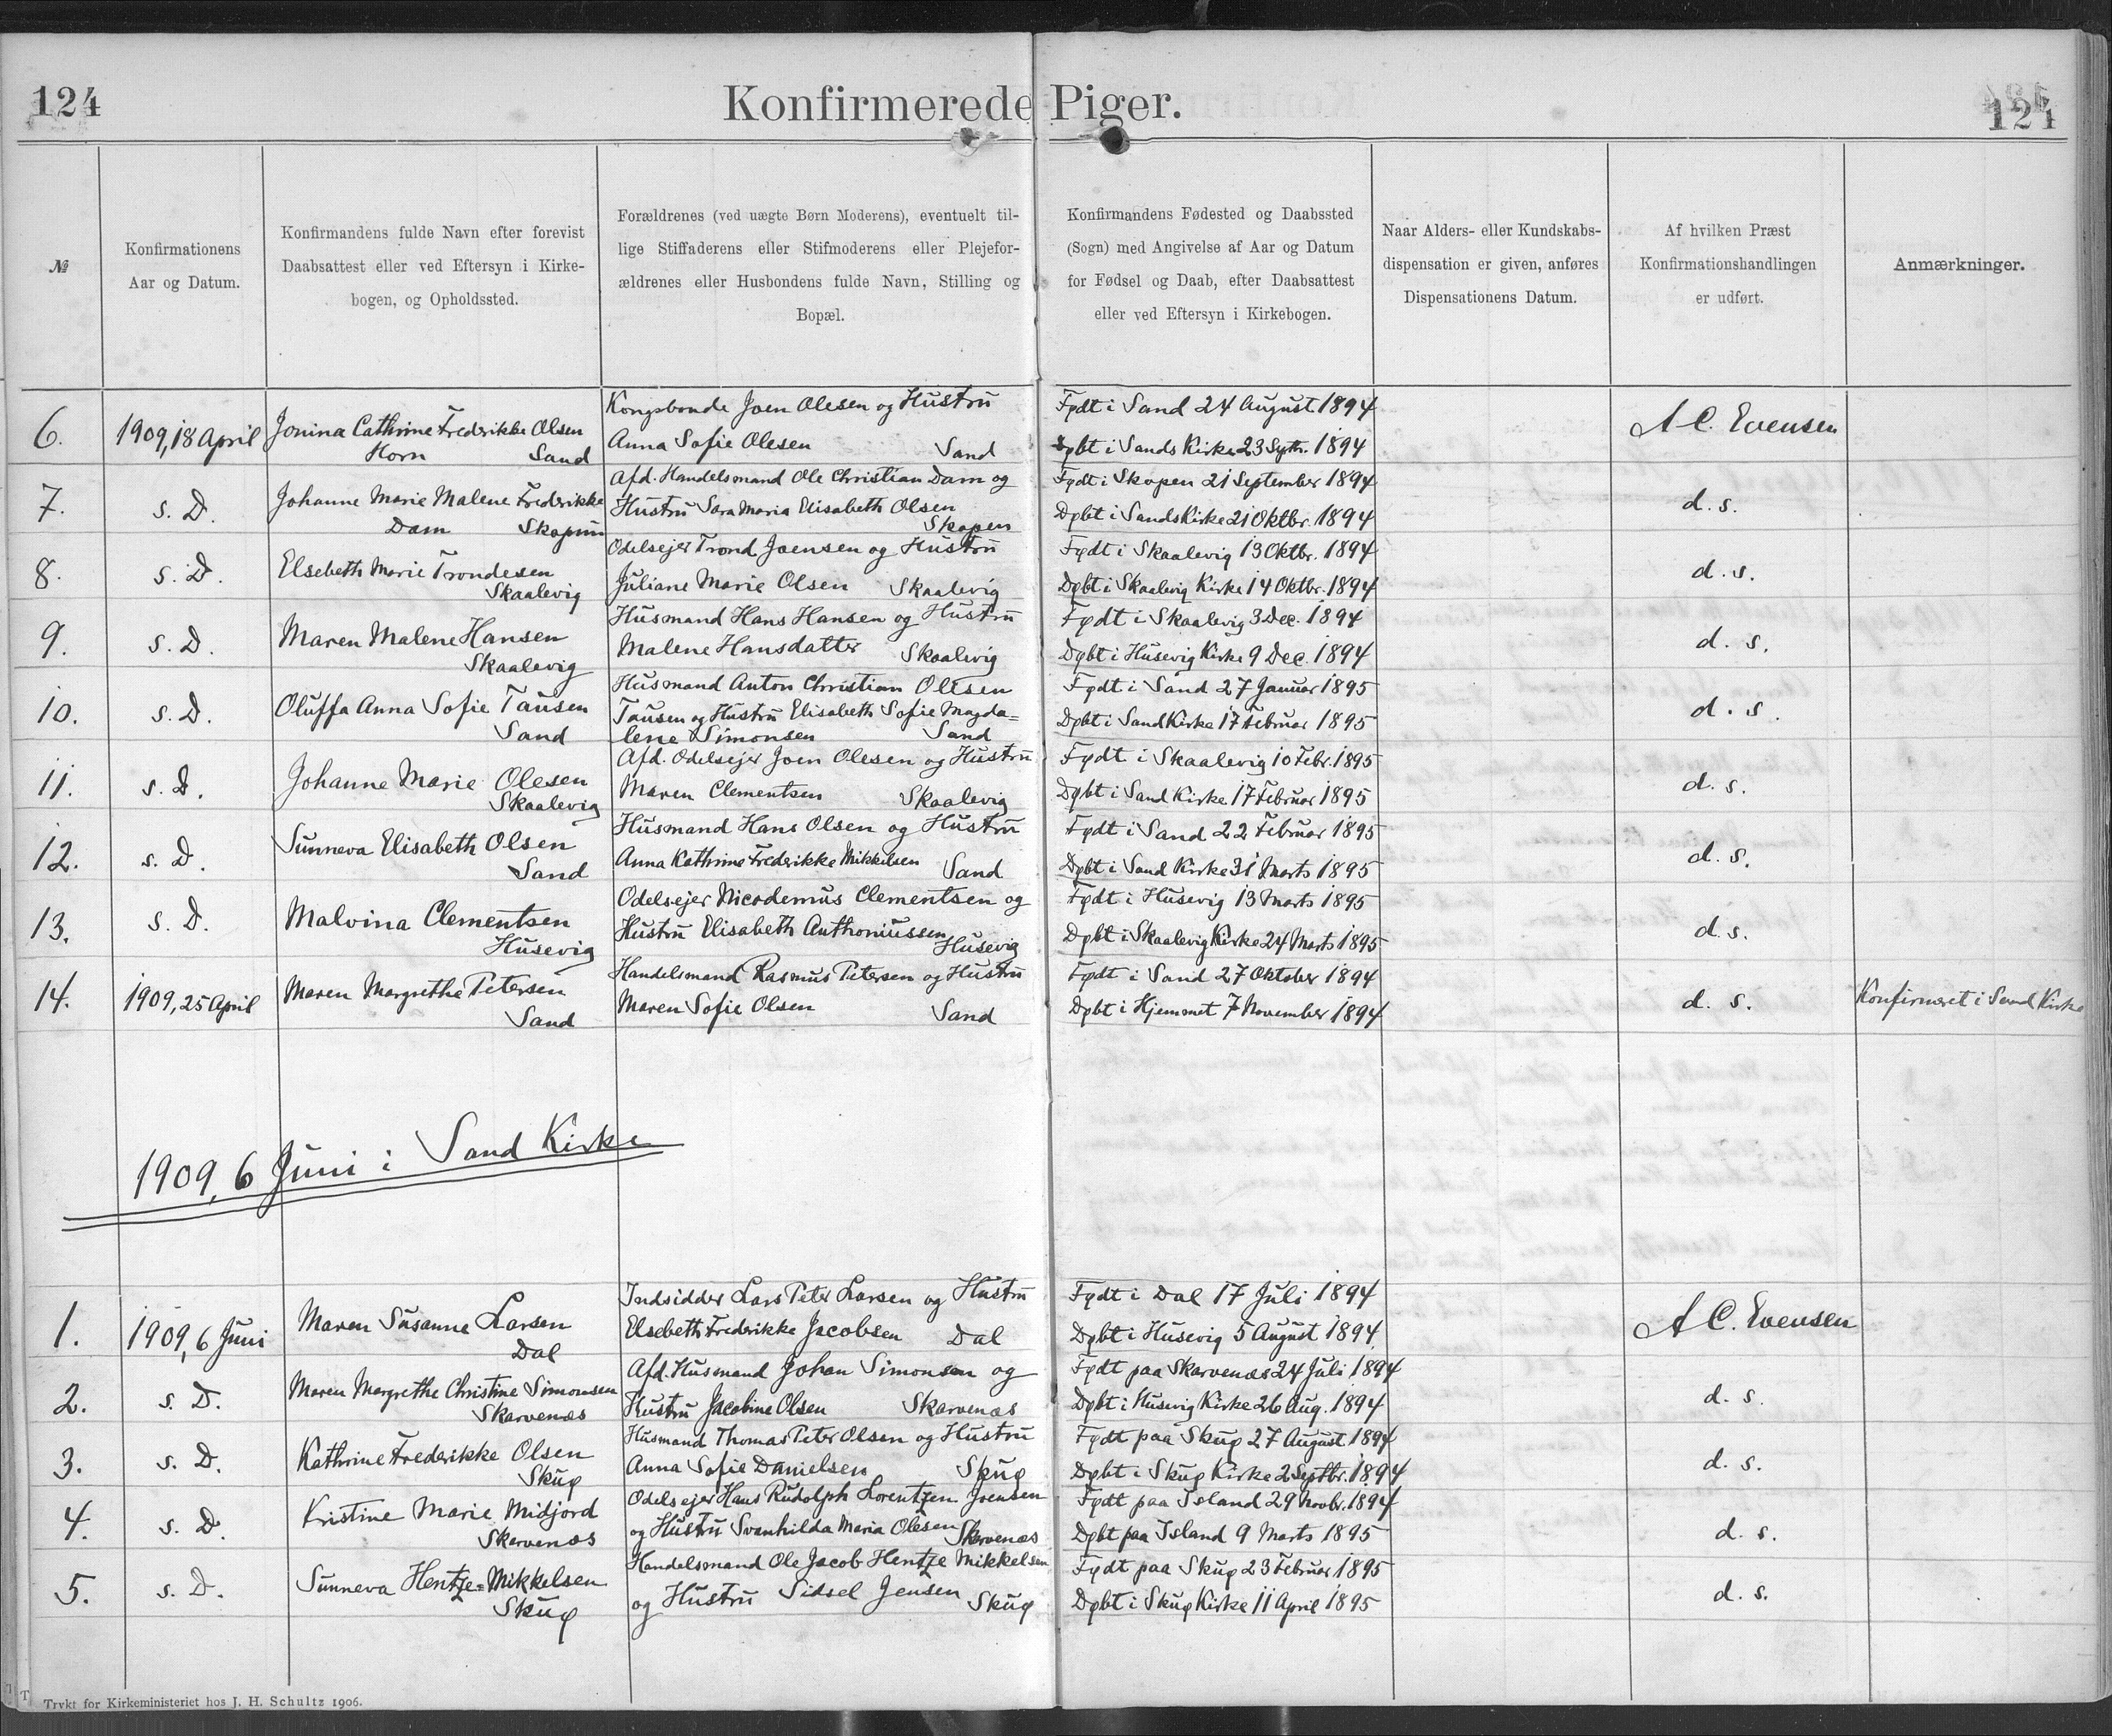 124
Konfirmerede Piger.
124
№
Konfirmationens
Aar og Datum.
Konfirmandens fulde Navn efter forevist
Daabsattest eller ved Eftersyn i Kirke-
bogen, og Opholdssted.
Forældrenes (ved uægte Børn Moderens), eventuelt til-
lige Stiffaderens eller Stifmoderens eller Plejefor-
ældrenes eller Husbondens fulde Navn, Stilling og
Bopæl.
Konfirmandens Fødested og Daabssted
(Sogn) med Angivelse af Aar og Datum
for Fødsel og Daab, efter Daabsattest
eller ved Eftersyn i Kirkebogen.
Naar Alders- eller Kundskabs-
dispensation er given, anføres
Dispensationens Datum.
Af hvilken Præst
Konfirmationshandlingen
er udført.
Anmærkninger.
6.
1909, 18 April
Jonina Cathrine Frederikke Olsen
Horn Sand
Kongsbonde Joen Olesen og Hustru
Anna Sofie Olesen Sand
Født i Sand 24 August 1894
Døbt i Sands Kirke 23 Septr. 1894
A C. Evensen
7.
s. D.
Johanne Marie Malene Frederikke
Dam Skopun
Afd. Handelsmand Ole Christian Dam og
Hustru Sara Maria Elisabeth Olsen
Skopen
Født i Skopen 21 September 1894
Døbt i Sands Kirke 21 Oktbr. 1894
d. s.
8.
s. D.
Elsebeth Marie Trondesen
Skaalevig
Odelsejer Trond Joensen og Hustru
Juliane Marie Olsen Skaalevig
Født i Skaalevig 13 Oktbr. 1894
Døbt i Skaalevig Kirke 14 Oktbr. 1894
d. s.
9.
s. D.
Maren Malene Hansen
Skaalevig
Husmand Hans Hansen og Hustru
Malene Hansdatter Skaalevig
Født i Skaalevig 3 Dec. 1894
Døbt i Husevig Kirke 9 Dec. 1894
d. s.
10.
s. D.
Oluffa Anna Sofie Tausen
Sand
Husmand Anton Christian Olesen
Tausen og Hustru Elisabeth Sofie Magda=
lene Simonsen Sand
Født i Sand 27 Januar 1895
Døbt i Sand Kirke 17 Februar 1895
d. s.
11.
s. D.
Johanne Marie Olesen
Skaalevig
Afd. Odelsejer Joen Olesen og Hustru
Maren Clementsen Skaalevig
Født i Skaalevig 10 Febr. 1895
Døbt i Sand Kirke 17 Februar 1895
d. s.
12.
s. D.
Sunneva Elisabeth Olsen
Sand
Husmand Hans Olsen og Hustru
Anna Kathrine Frederikke Mikkelsen Sand
Født i Sand 22 Februar 1895
Døbt i Sand Kirke 31 Marts 1895
d. s.
13.
s. D.
Malvina Clementsen
Husevig
Odelsejer Nicodemus Clementsen og
Hustru Elisabeth Anthoniussen
Husevig
Født i Husevig 13 Marts 1895
Døbt i Skaalevig Kirke 24 Marts 1895
d. s.
14.
1909, 25 April
Maren Margrethe Petersen
Sand
Handelsmand Rasmus Petersen og Hustru
Maren Sofie Olsen Sand
Født i Sand 27 Oktober 1894
Døbt i Hjemmet 7 November 1894
d. s.
Konfirmeret i Sand Kirke
1909, 6 Juni i Sand Kirke
1.
1909, 6 Juni
Maren Susanne Larsen
Dal
Indsidder Lars Peter Larsen og Hustru
Elsebeth Frederikke Jacobsen Dal
Født i Dal 17 Juli 1894
Døbt i Husevig 5 August 1894
A C. Evensen
2.
s. D.
Maren Margrethe Christine Simonsen
Skarvenæs
Afd. Husmand Johan Simonsen og
Hustru Jacobine Olsen Skarvenæs
Født paa Skarvenæs 24 Juli 1894
Døbt i Husevig Kirke 26 Aug. 1894
d. s.
3.
s. D.
Kathrine Frederikke Olsen
Skuø
Husmand Thomas Peter Olsen og Hustru
Anna Sofie Danielsen Skuø
Født paa Skuø 27 August 1894
Døbt i Skuø Kirke 2 Septbr. 1894
d. s.
4.
s. D.
Kristine Marie Midjord
Skarvenæs
Odelsejer Hans Rudolph Lorentzen Joensen
og Hustru Svanhilda Maria Olesen Skarvenæs
Født paa Island 29 Novbr. 1894
Døbt paa Island 9 Marts 1895
d. s.
5.
s. D.
Sunneva Hentze=Mikkelsen
Skuø
Handelsmand Ole Jacob Hentze Mikkelsen
og Hustru Sidsel Jensen Skuø
Født paa Skuø 23 Februar 1895
Døbt i Skuø Kirke 11 April 1895
d. s.
Trykt for Kirkeministeriet hos J. H. Schultz 1906.